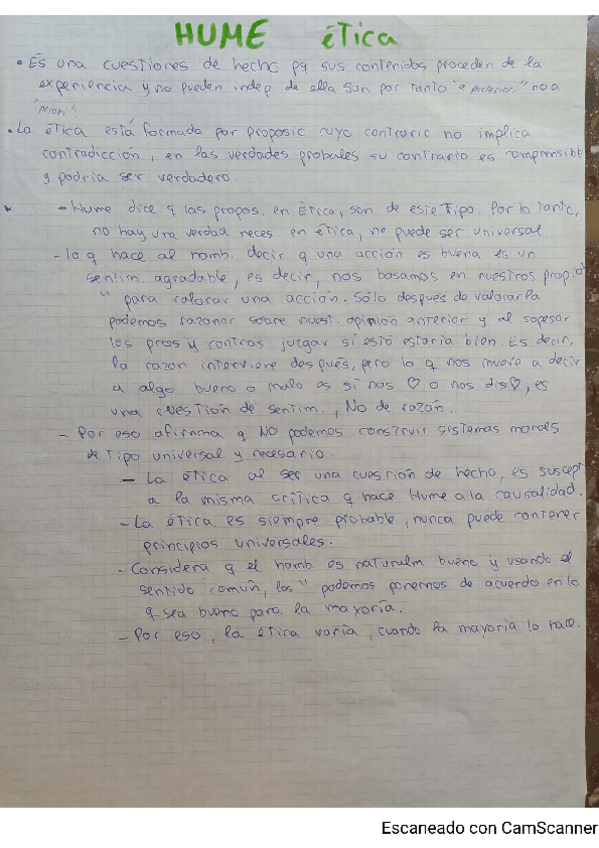 HUME ética
• Es una cuestiones de hecho pq sus contenidos proceden de la
experiencia y no pueden indep de ella son por tanto "a posteriori" no a
"priori"
• La ética está formada por proposic. cuyo contrario no implica
contradicción, en las verdades probales su contrario es comprensible
y podría ser verdadero.
- Hume dice q las propos. en Ética, son de este Tipo. Por lo Tanto,
no hay una verdad neces. en ética, no puede ser universal.
- lo q hace al homb. decir q una acción es buena es un
sentim. agradable, es decir, nos basamos en nuestros propios
" para valorar una acción. Sólo después de valorarla
podemos razonar sobre nuest. opinión anterior y al sopesar
los pros y contras juzgar si esto estaría bien. Es decir,
la razón interviene después, pero lo q nos mueve a decir
a algo bueno o malo es si nos ♡ o nos dis♡, es
una cuestión de sentim., No de razón.
- Por eso afirmma q NO podemos construir sistemas morales
de tipo universal y necesario.
- La ética al ser una cuestión de hecho, es suscept
a la misma crítica q hace Hume a la causalidad.
- La ética es siempre probable, nunca puede contener
principios universales.
- Considera q el homb. es naturalm bueno y usando el
sentido común, los " podemos ponernos de acuerdo en lo
q sea bueno para la mayoría.
- Por eso, la ética varía, cuando la mayoría lo hace.
Escaneado con CamScanner